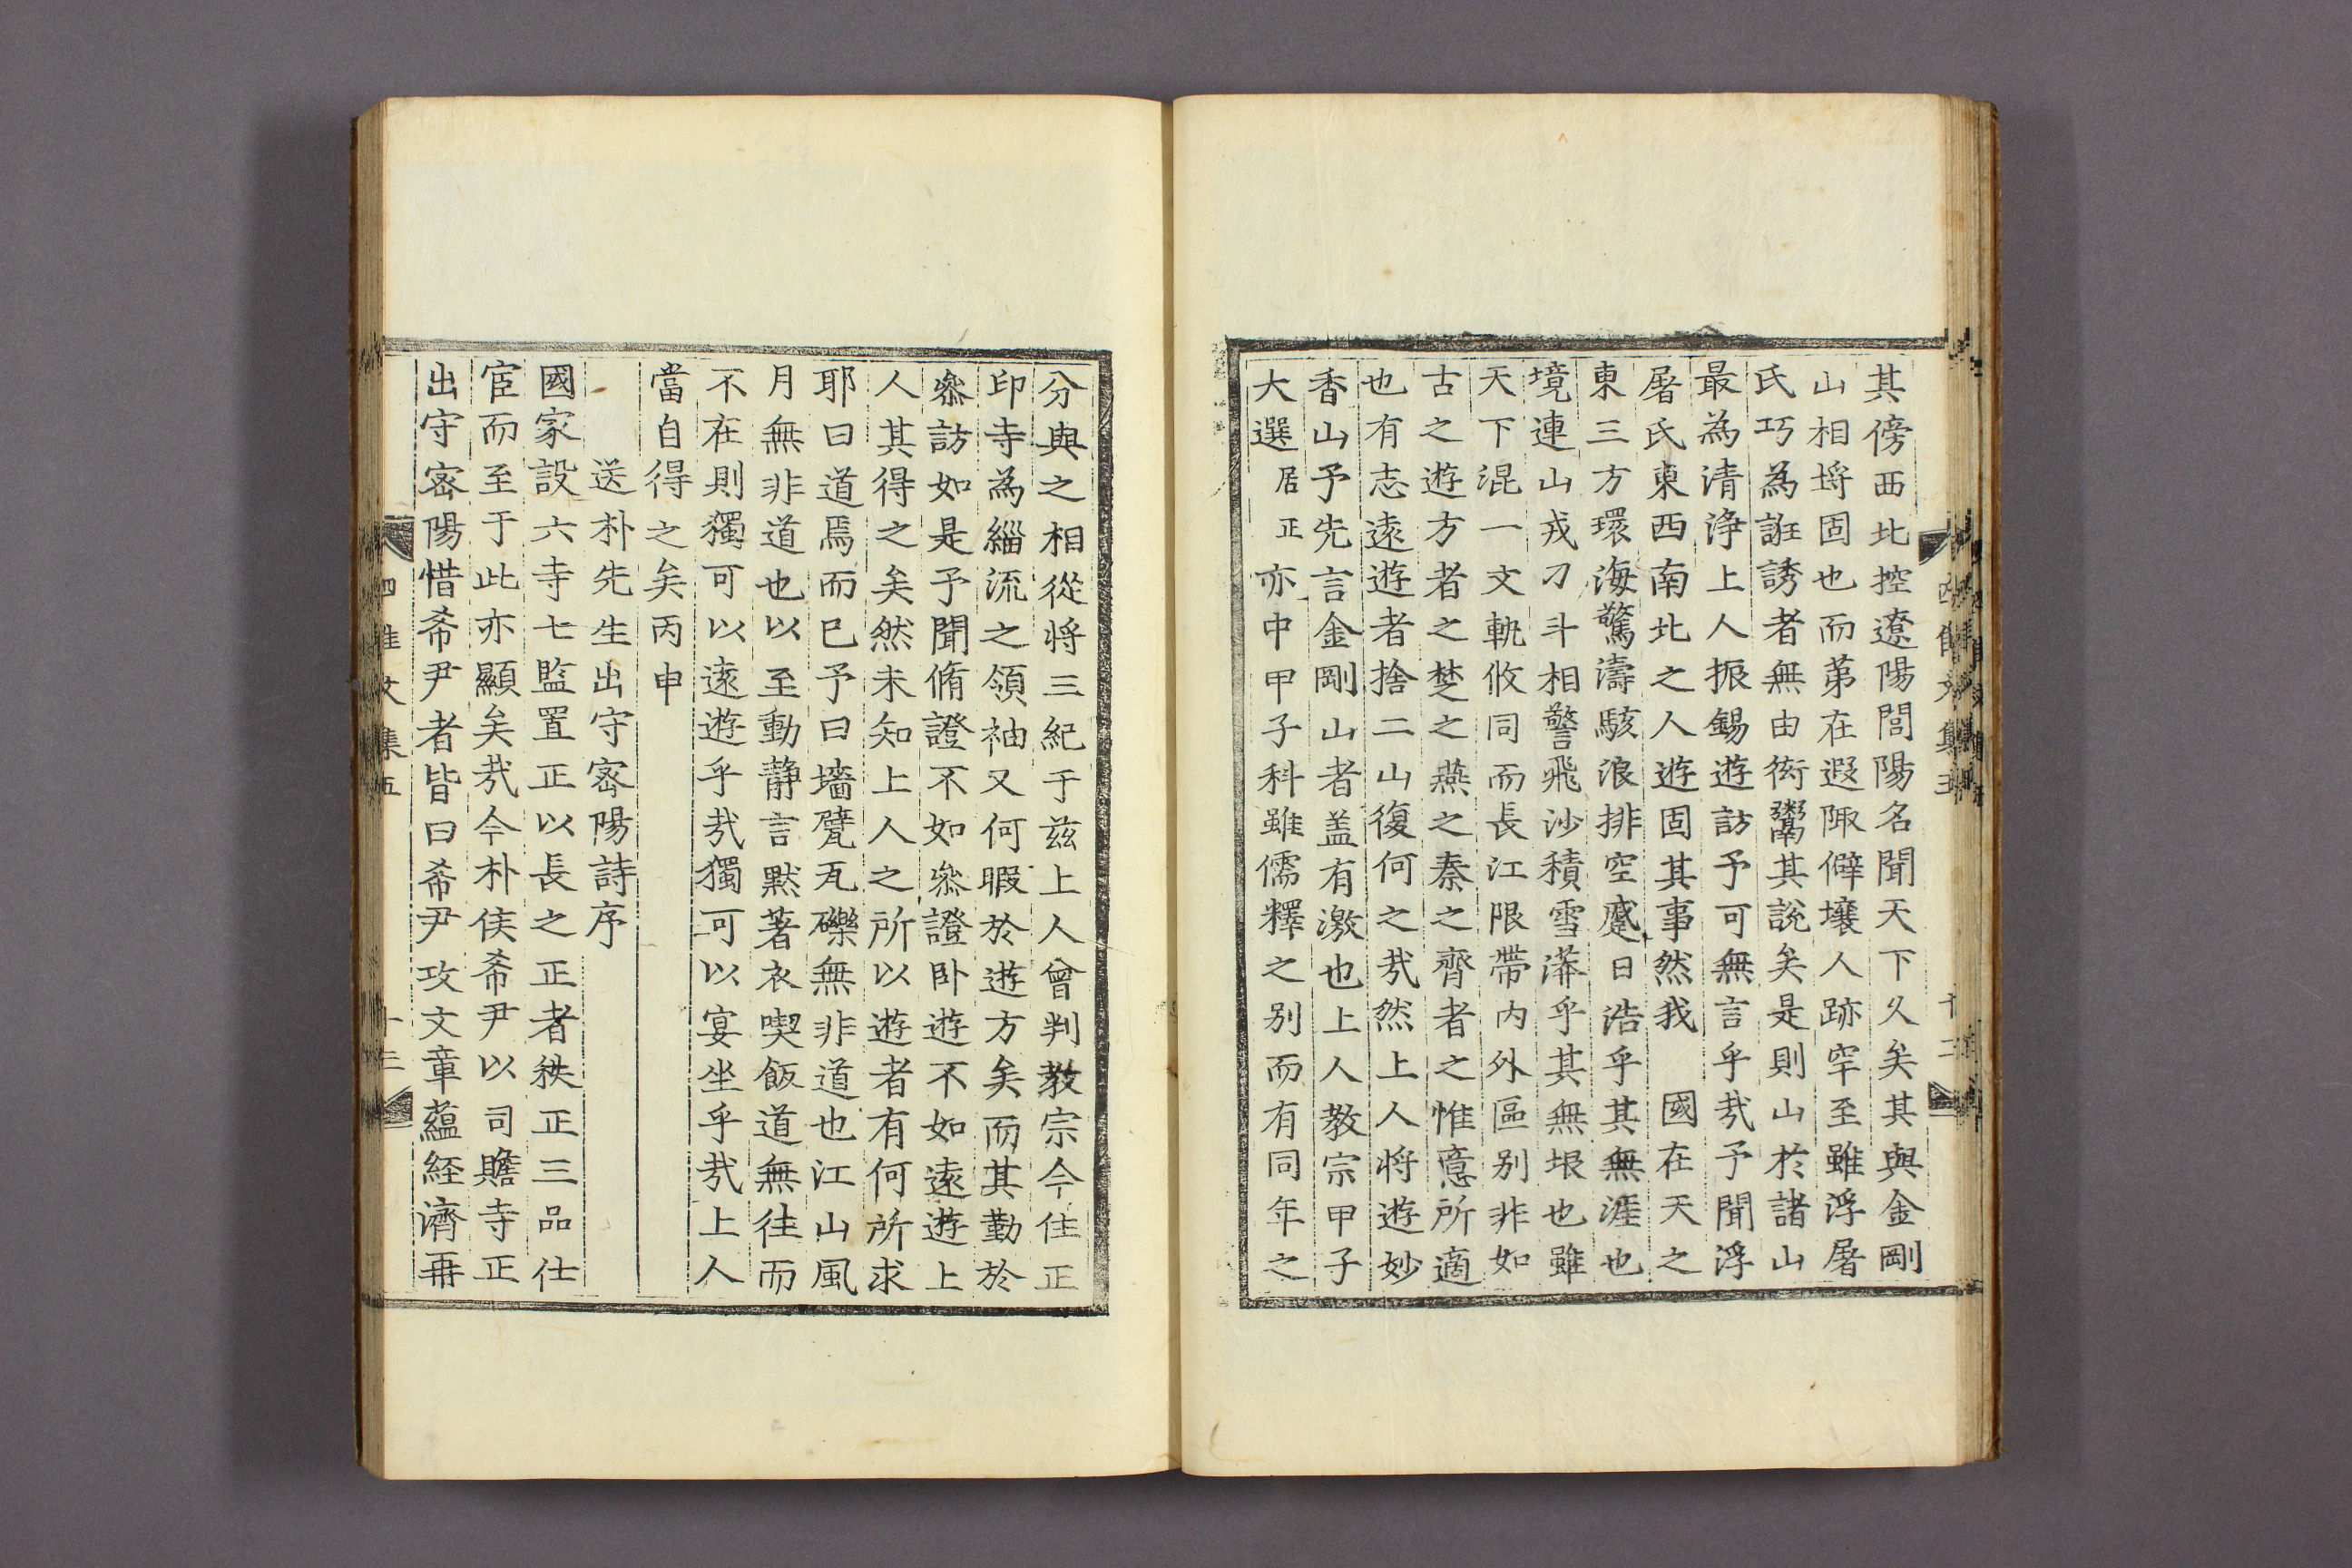 其傍西北控遼陽閭陽名聞天下久矣其與金剛
山相埒固也而苐在遐陬僻壤人跡罕至雖浮屠
氏巧為誑誘者無由衒鬻其說矣是則山於諸山
最為清浄上人振錫遊訪予可無言乎㦲予聞浮
屠氏東西南北之人遊固其事然我　國在天之
東三方環海驚濤駭浪排空蹙日浩乎其無涯也
境連山戎刁斗相警飛沙積雪漭乎其無垠也雖
天下混一文軌攸同而長江限帶內外區别非如
古之遊方者之楚之燕之秦之齊者之惟意所適
也有志遠遊者捨二山復何之㦲然上人將遊妙
香山予先言金剛山者盖有激也上人教宗甲子
大選居正亦中甲子科雖儒釋之别而有同年之
四佳文集五
十二
分與之相從將三紀于兹上人曾判教宗今住正
印寺為緇流之領袖又何暇於遊方矣而其勤於
叅訪如是予聞脩證不如叅證卧遊不如遠遊上
人其得之矣然未知上人之所以遊者有何所求
耶曰道焉而已予曰墻甓瓦礫無非道也江山風
月無非道也以至動静言黙著衣喫飯道無往而
不在則獨可以遠遊乎㦲獨可以宴坐乎㦲上人
當自得之矣丙申
送朴先生出守密陽詩序
國家設六寺七監置正以長之正者秩正三品仕
宦而至于此亦顯矣㦲今朴侯希尹以司贍寺正
出守密陽惜希尹者皆曰希尹攻文章蘊経濟再
四佳文集五
十三